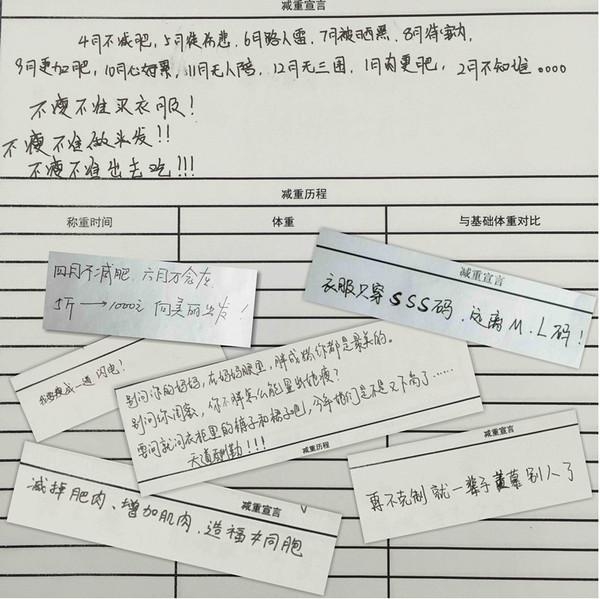 减重宣言
4月不减肥，5月徒伤悲，6月路人雷，7月被晒黑，8月待室内，
9月更加肥，10月心如累，11月无人陪，12月无三围，1月肉更肥，2月不知谁。。。。
不瘦不准买衣服！
不瘦不准做头发！！
不瘦不准出去吃！！！
减重历程
称重时间
体重
与基础体重对比
四月不减肥，六月万念灰
1斤→1000元 向美丽出发！
减重宣言
衣服只穿SSS码，远离M、L码！
我要瘦成一道闪电！
别问你的妈妈，在妈妈眼里，胖成粉你都是最美的。
别问你闺蜜，你不胖怎么能显出她瘦？
要问就问衣柜里的裤子和裙子吧，今年他们是不是又下岗了……
天道酬勤！！！
减重历程
减重宣言
减掉肥肉、增加肌肉，造福女同胞
减重宣言
再不克制就一辈子羡慕别人了